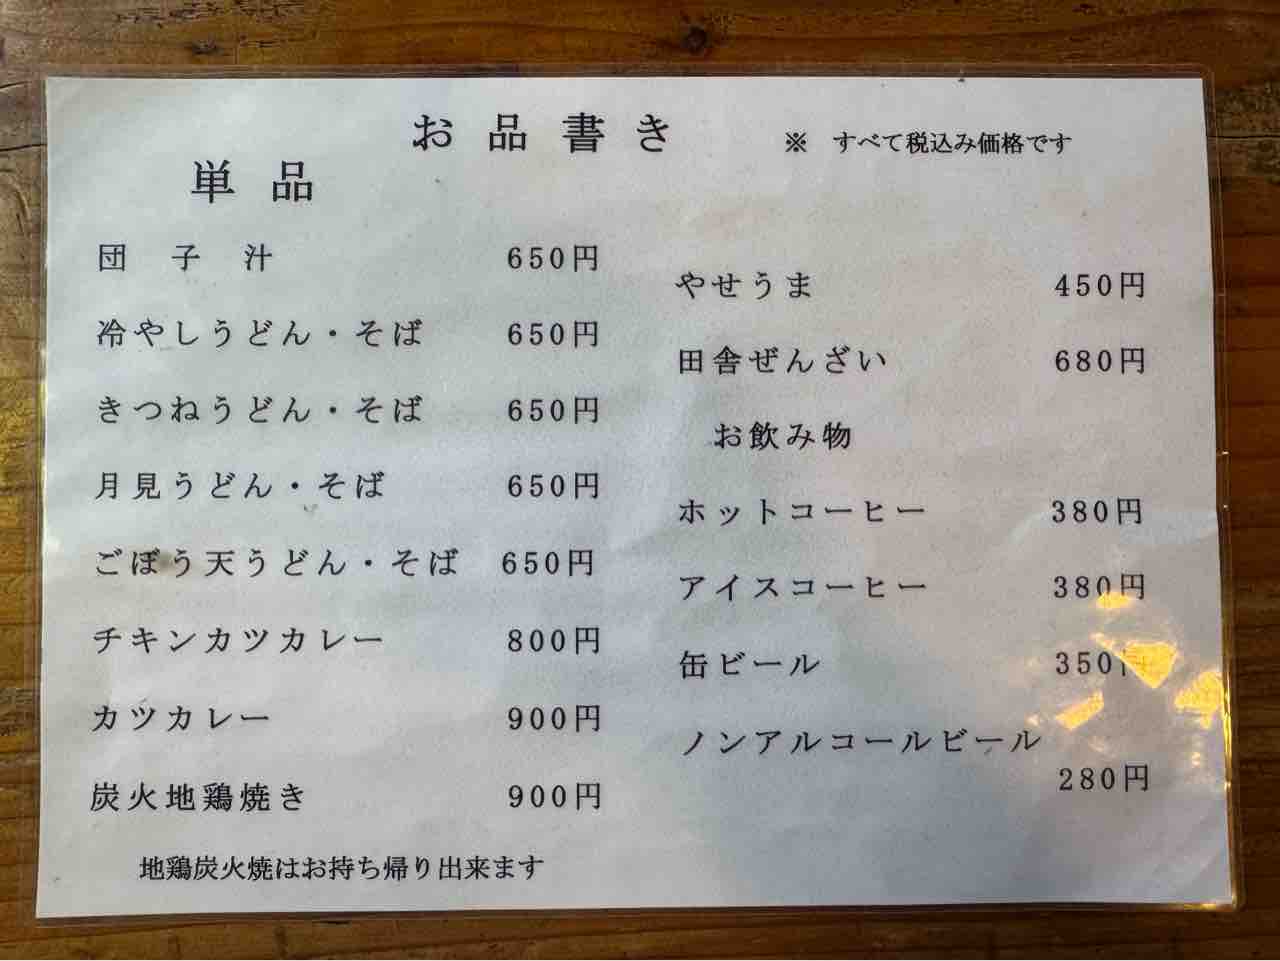 お品書き
※ すべて税込み価格です
単品
団子汁 650円
冷やしうどん・そば 650円
きつねうどん・そば 650円
月見うどん・そば 650円
ごぼう天うどん・そば 650円
チキンカツカレー 800円
カツカレー 900円
炭火地鶏焼き 900円
地鶏炭火焼はお持ち帰り出来ます
やせうま 450円
田舎ぜんざい 680円
お飲み物
ホットコーヒー 380円
アイスコーヒー 380円
缶ビール 350円
ノンアルコールビール
280円